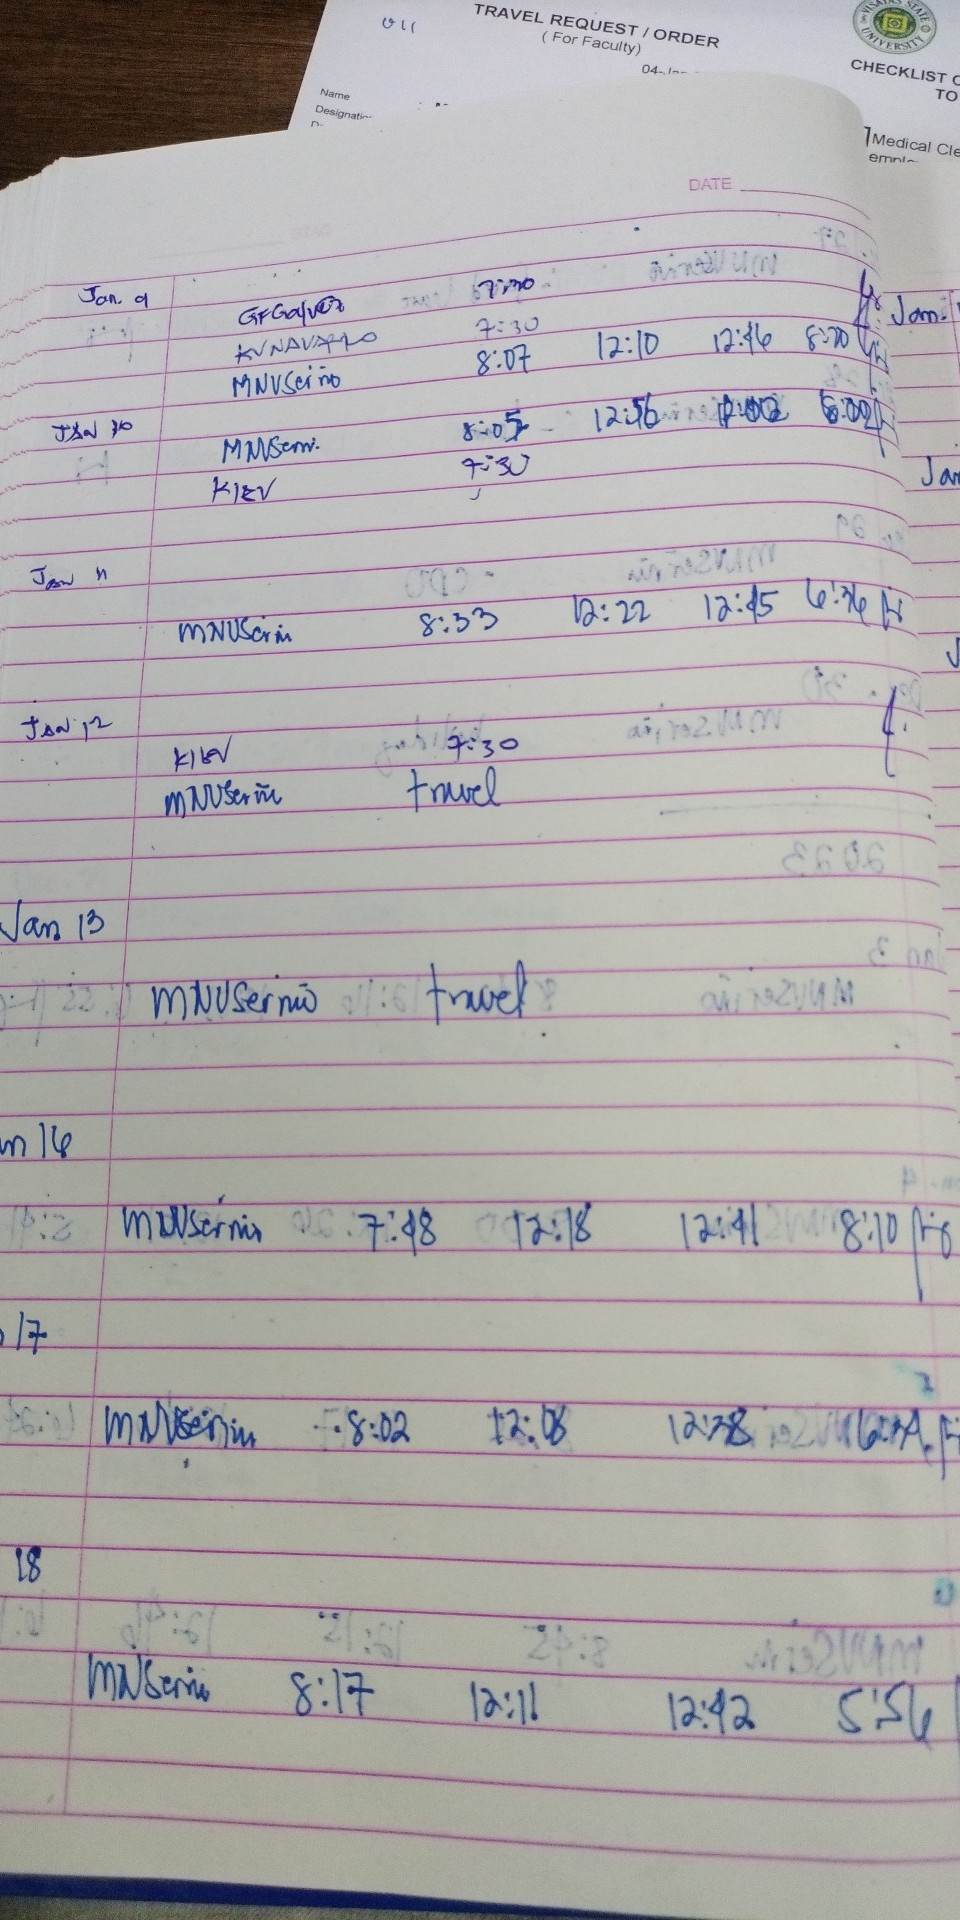 TRAVEL REQUEST / ORDER
( For Faculty)
04-Jan
Name :
Designation
VISAYAS STATE UNIVERSITY
CHECKLIST
TO
Medical Cle
DATE
Jan. 9
GFGalvez 7:30
KVNAVARRO 7:30
MNVSeriño 8:07 12:10 12:46 8:20
Jan 10
MNVSerin 8:05 12:56 6:02
KIEV 7:30
Jan 11
MNVSerin 8:33 12:22 12:45 6:36
Jan 12
KIEV 7:30
MNVSerin travel
Jan 13
MNVSerino travel
n 16
MNVSerin 7:48 12:18 12:41 8:10
17
MNVSerin 8:02 12:08 12:38
18
MNVSerin 8:17 12:11 12:42 5:56
Jan.
Jan